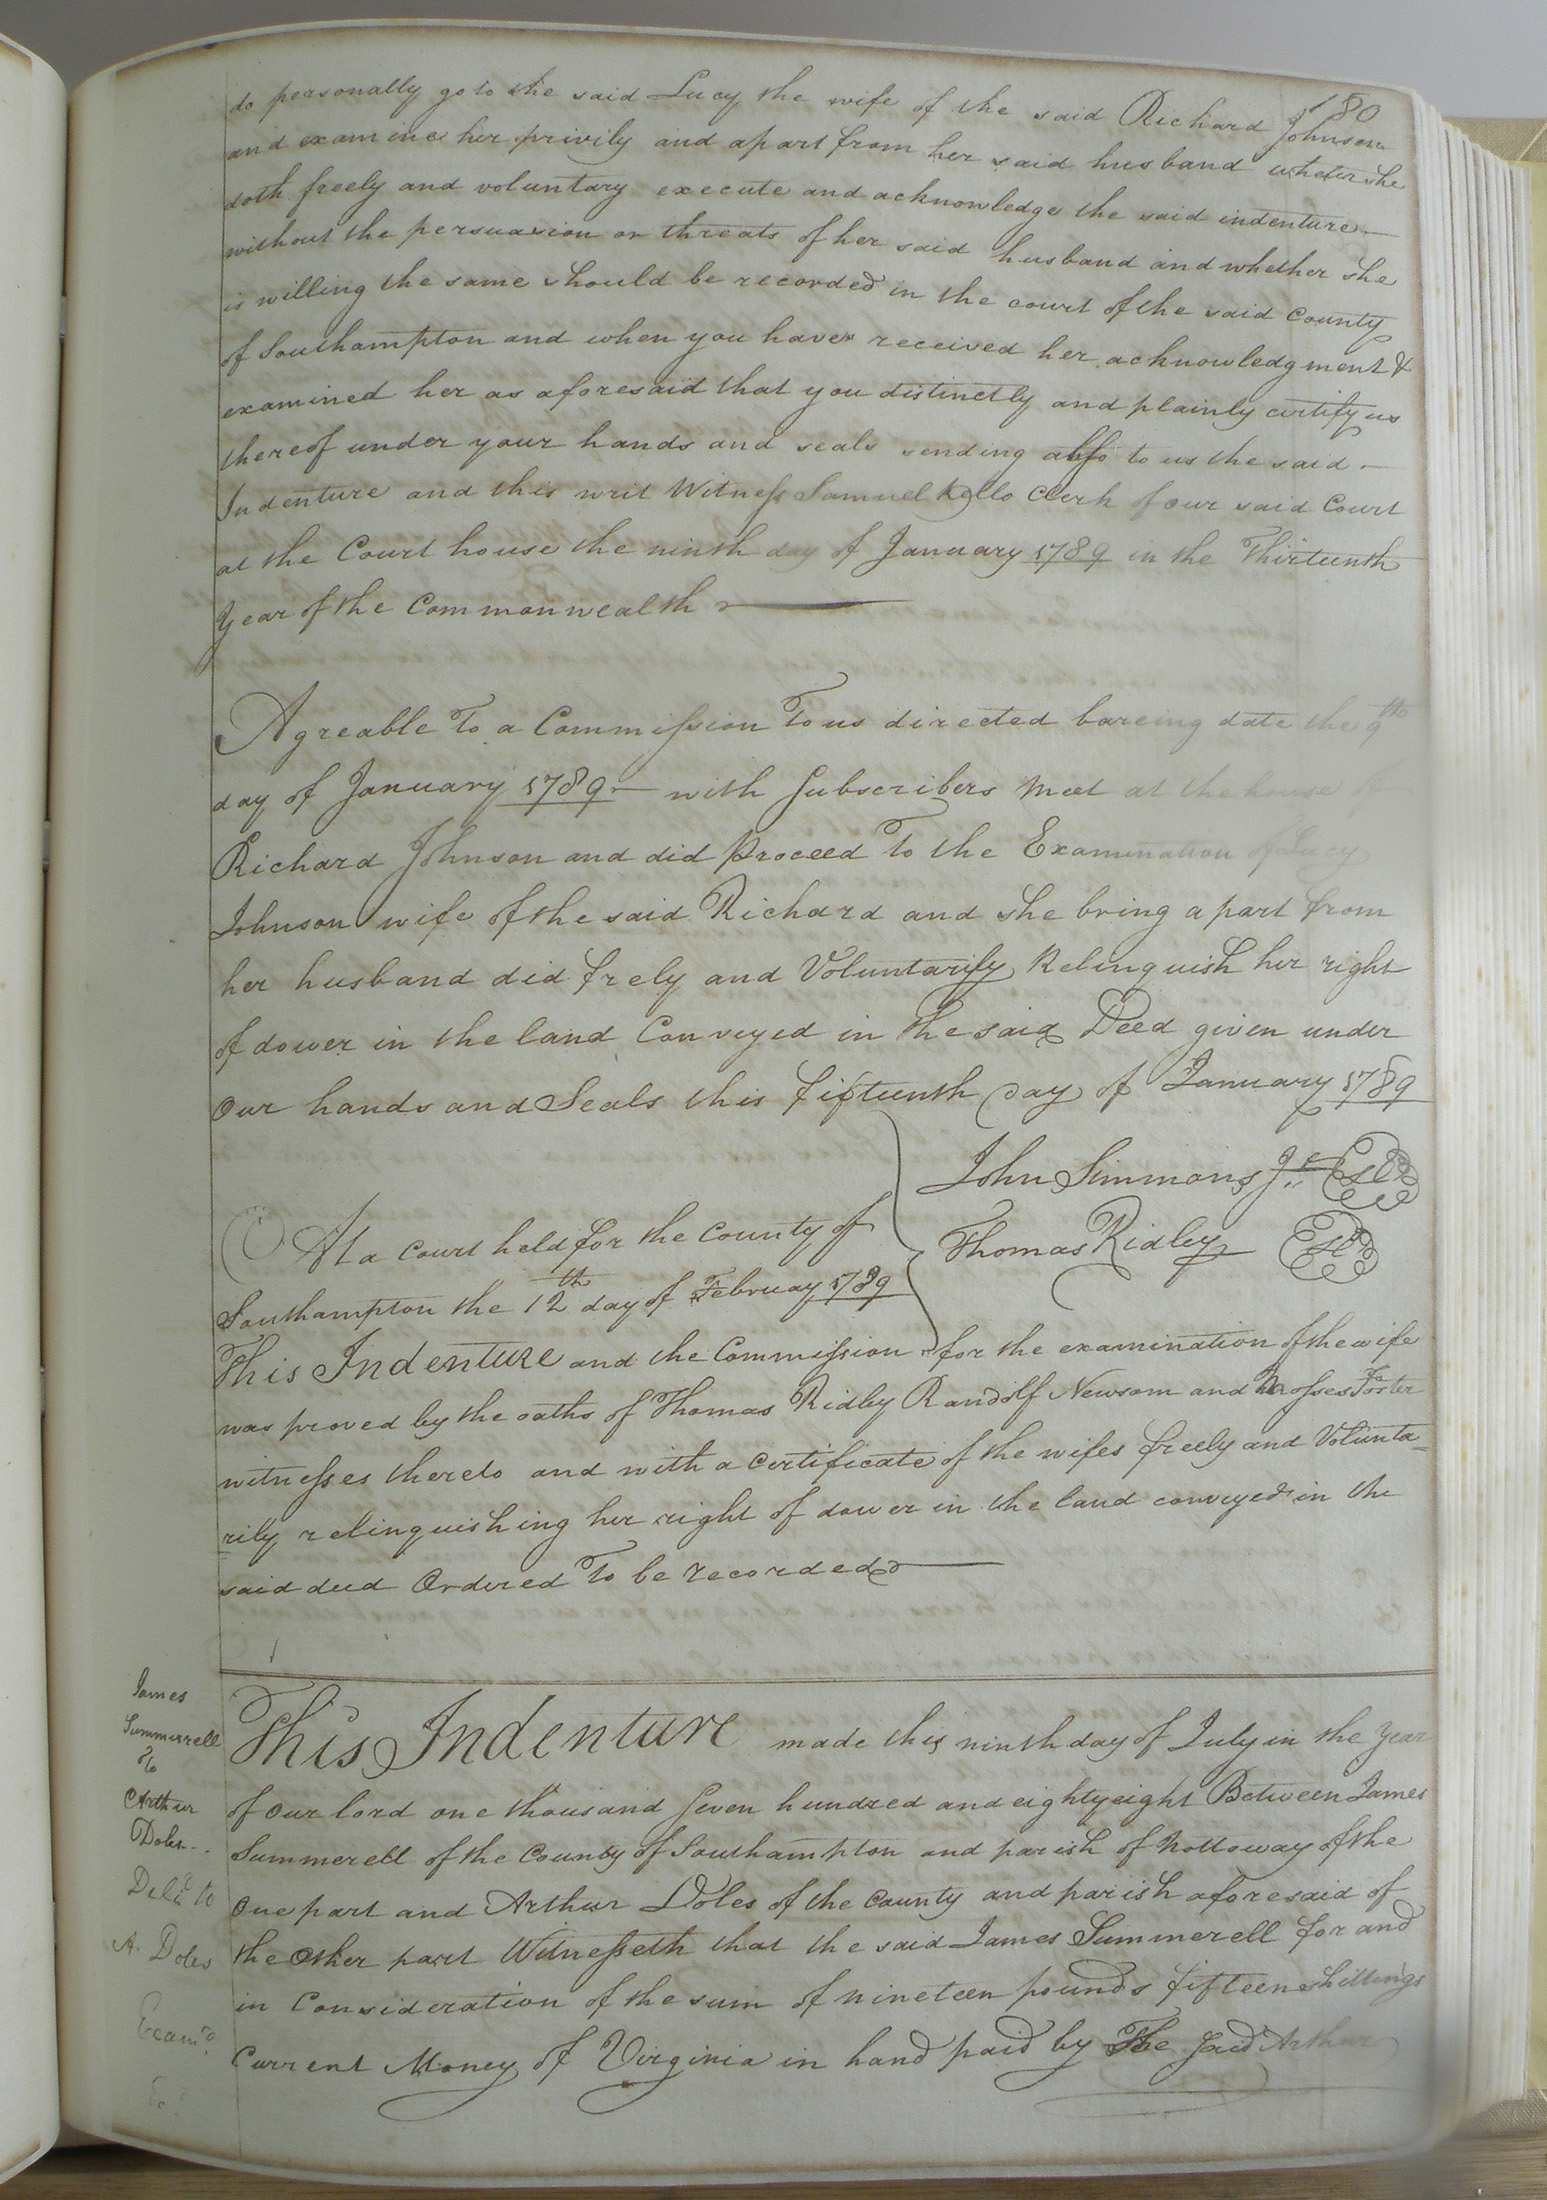 180
do personally go to the said Lucy the wife of the said Richard Johnson
and examine her privily and apart from her said husband whether she
doth freely and voluntary execute and acknowledge the said indenture —
without the persuasion or threats of her said husband and whether she
is willing the same should be recorded in the court of the said County
of Southampton and when you have received her acknowledgment &
examined her as aforesaid that you distinctly and plainly certify us
thereof under your hands and seals sending also to us the said —
Indenture and this writ Witness Samuel Kello Clerk of our said Court
at the Court house the ninth day of January 1789 in the Thirteenth
Year of the Commonwealth —
Agreable To a Commission To us directed bareing date the 9th
day of January 1789 — with Subscribers Meet at the house of
Richard Johnson and did Proceed To the Examination of Lucy
Johnson wife of the said Richard and she bring apart from
her husband did frely and Voluntarily Relinquish her right
of dower in the land Conveyed in the said Deed given under
Our hands and Seals this fifteenth Day of January 1789
John Simmons Jr
Thomas Ridley
At a Court held for the County of
Southampton the 12th day of February 1789
This Indenture and the Commission for the examination of the wife
was proved by the oaths of Thomas Ridley Randolf Newsom and Mosses Foster
witnesses thereto and with a Certificate of the wifes freely and Volunta=
rily relinquishing her right of dower in the land conveyed in the
said deed Ordered To be recorded —
James
Summerrell
To
Arthur
Doles
Deld to
A. Doles
Examd
This Indenture made this ninth day of July in the Year
of our lord one thousand Seven hundred and eighty eight Between James
Summerell of the County of Southampton and parish of Nottoway of the
One part and Arthur Doles of the County and parish aforesaid of
the Other part Witnesseth that the said James Summerell for and
in Consideration of the sum of nineteen pounds fifteen shillings
Current Money of Virginia in hand paid by The Said Arthur